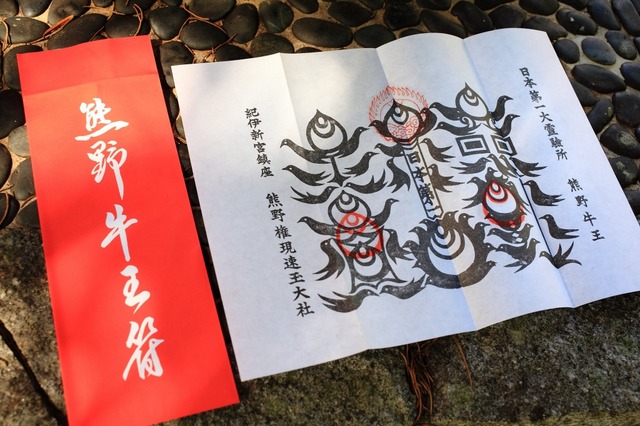 熊野牛王符
日本第一大靈驗所
熊野牛王
日本第一
紀伊新宮鎮座
熊野権現速玉大社